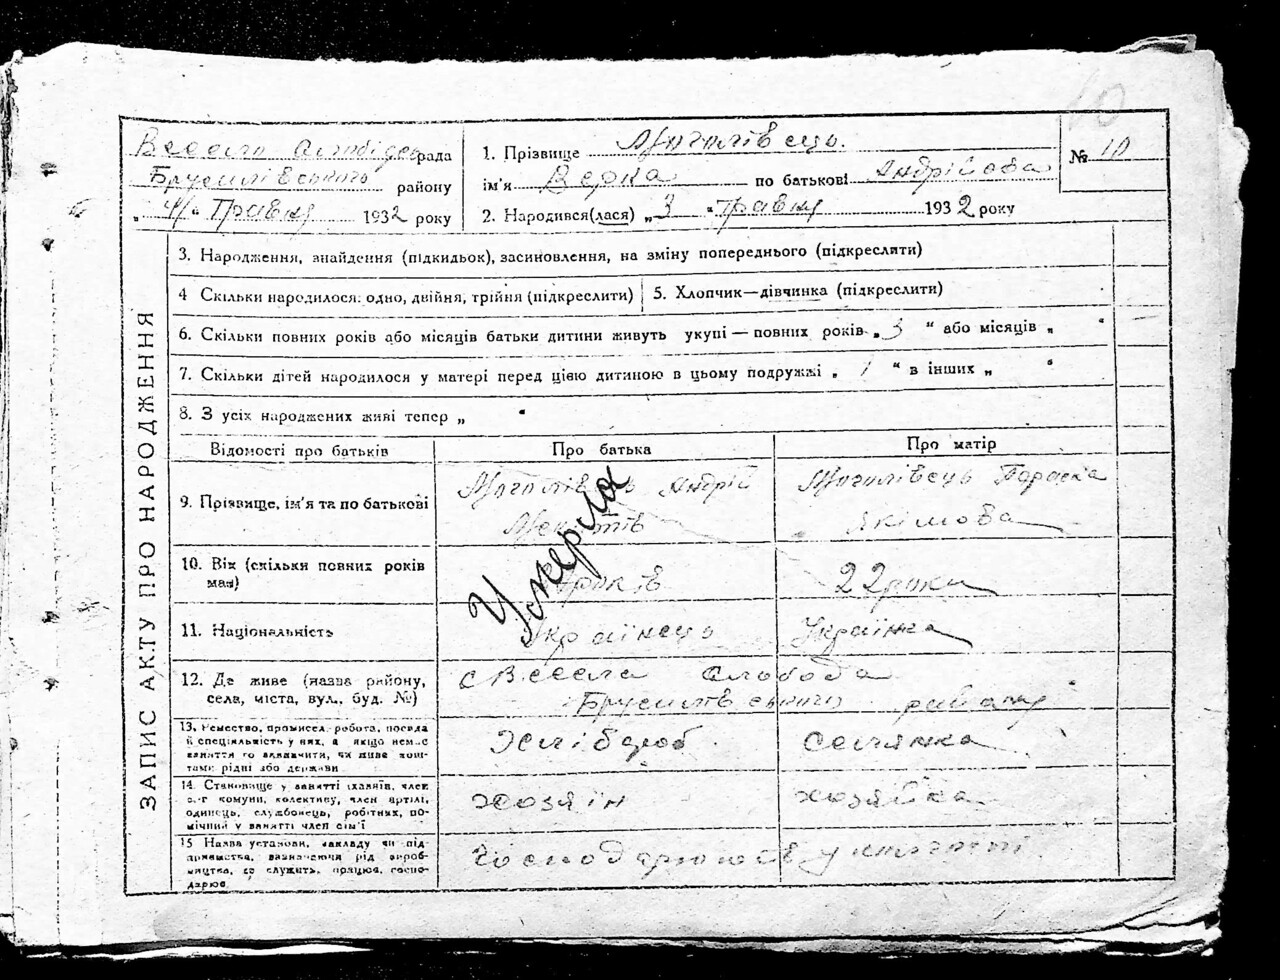 10
Весело Слобідськ рада
Брусилівського району
„ 4/“ Травня 1932 року
1. Прізвище Моголівець.
ім'я Верка по батькові Андрійова
2. Народився(лася) „ 3 “ Травня 1932 року
№ 10
ЗАПИС АКТУ ПРО НАРОДЖЕННЯ
3. Народження, знайдення (підкидьок), засиновлення, на зміну попереднього (підкреслити)
4 Скільки народилося: одно, двійня, трійня (підкреслити)
5. Хлопчик—дівчинка (підкреслити)
6. Скільки повних років або місяців батьки дитини живуть укупі — повних років „ 3 “ або місяців „ “
7. Скільки дітей народилося у матері перед цією дитиною в цьому подружжі „ 1 “ в інших „ “
8. З усіх народжених живі тепер „ “
Відомості про батьків
Про батька
Про матір
9. Прізвище, ім'я та по батькові
Моголівець Андрій
Моголівець Параска
Якімова
Умерла
10. Вік (скільки повних років
має)
років
22 роки
11. Національність
Українець
Українка
12. Де живе (назва району,
села, міста, вул., буд. №)
с Весела Слобода
Брусилівського району
13. Ремество, промисел, робота, посада
й спеціяльність у них, а якщо немає
заняття то зазначити, чи живе кош-
тами рідні або держави
Хлібороб
Селянка
14. Становище у занятті (хазяїн, член
с.-г комуни, колективу, член артілі,
одинець, службовець, робітник, по-
мічний у занятті член сім'ї
хозяін
хозяйка
15 Назва установи, закладу чи під-
приємства, зазначаючи рід вироб-
ництва, де служить, працює, госпо-
дарює